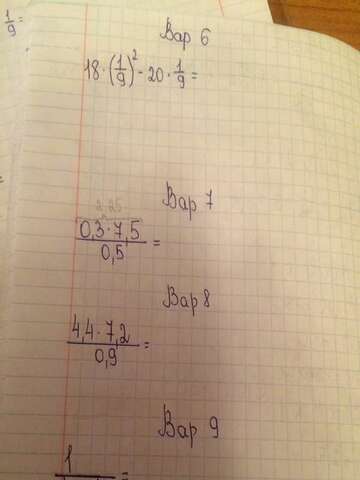 1/9 =
Вар 6
18 · (1/9)² - 20 · 1/9 =
Вар 7
2,25
0,3 · 7,5 / 0,5 =
Вар 8
4,4 · 7,2 / 0,9 =
Вар 9
1
=